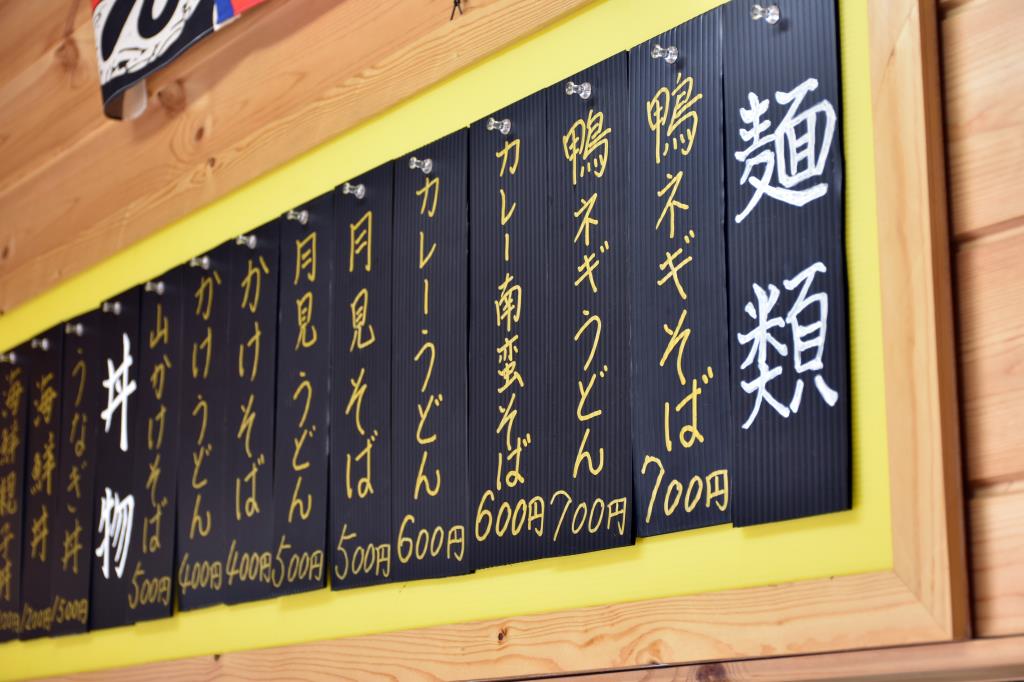 麺類
鴨ネギそば
700円
鴨ネギうどん
700円
カレー南蛮そば
600円
カレーうどん
600円
月見そば
500円
月見うどん
500円
かけそば
400円
かけうどん
400円
山かけそば
500円
丼物
うなぎ丼
1500円
海鮮丼
1200円
海鮮親子丼